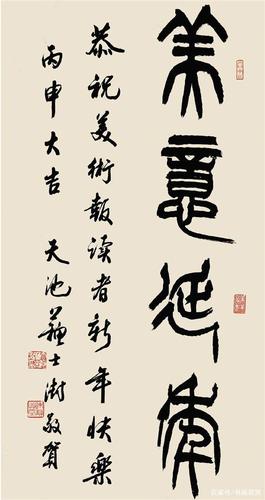 美意延年
恭祝美術報读者新年快樂
丙申大吉 天池蘇士澍敬賀